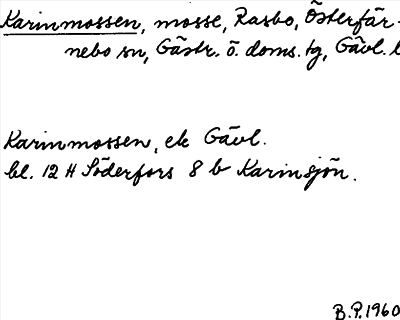 Karinmossen, mosse, Rasbo, Österfär-
nebo sn, Gästr. ö. doms. tg, Gävl. l
Karinmossen, ek Gävl.
bl. 12 H Söderfors 8 b Karinsjön.
B.P. 1960